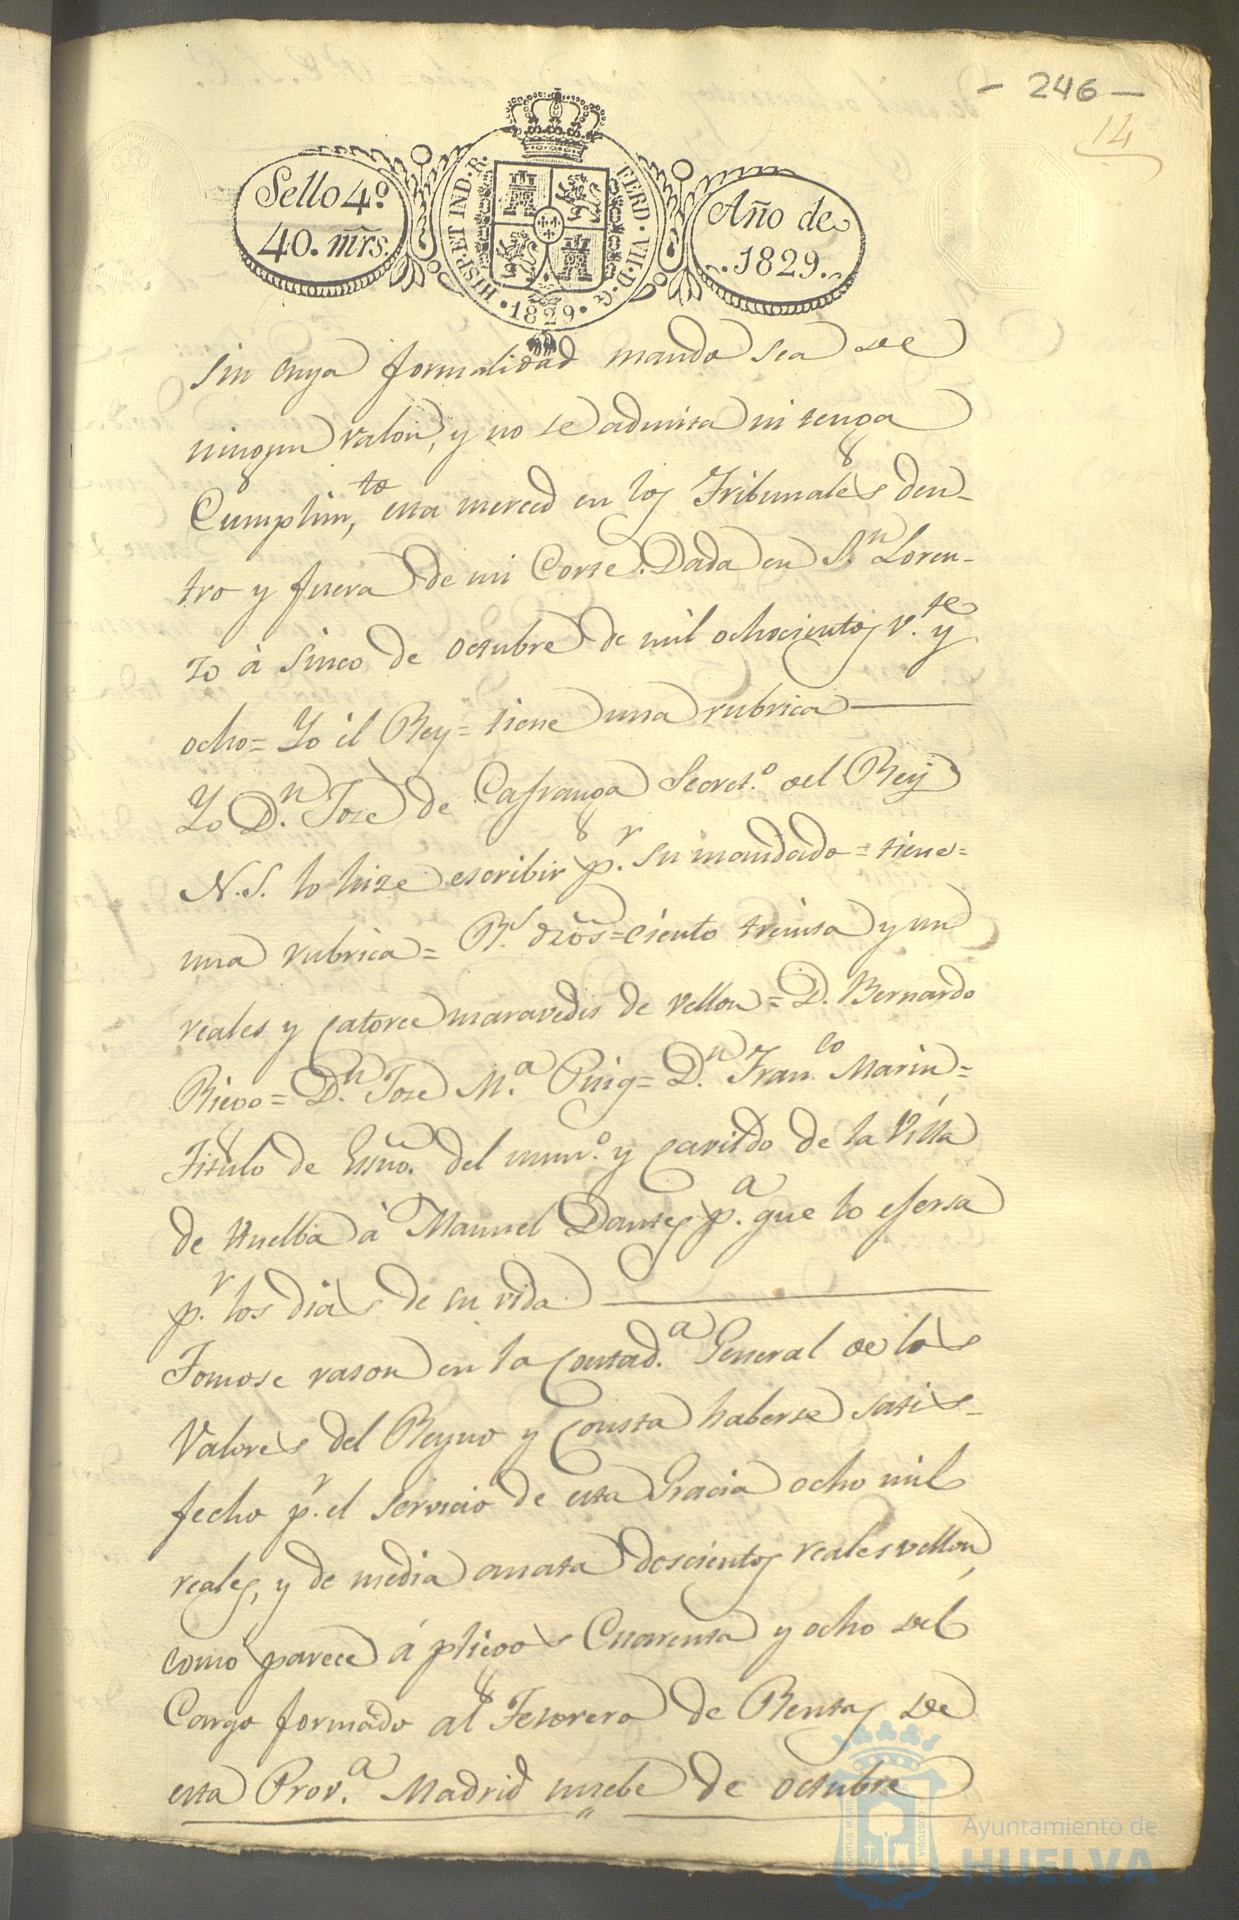 - 246 -
14
Sello 4º
40. mrs.
HISP. ET IND. R.
FERD. VII. D. G.
1829
Año de
1829.
sin cuya formalidad mando sea de
ningun valor, y no se admita ni tenga
Cumplim,to esta merced en los Tribunales den-
tro y fuera de mi Corte. Dada en S.n Loren-
zo à sinco de octubre de mil ochocientos v.te y
ocho= Yo èl Rey= tiene una rubrica
Yo D.n Jose de Cafranga Secret.o del Rey
N.S. lo hize escribir p.r su mandado= tiene=
una rubrica= R.s dros= ciento treinta y un
reales y catorce maravedis de vellon= D. Bernardo
Riego= D.n Jose M.a Puig= D.n Fran.co Marin=
Titulo de Essno. del num.o y cavildo de la Villa
de Huelba à Manuel Dantes p.a que lo ejersa
p.r los dias de su vida
Tomose rason en la Contad.a General de los
Valores del Reyno y Consta haberse satis-
fecho p.r el servicio de esta Gracia ocho mil
reales, y de media anata doscientos reales vellon,
como parece á pliegos Cuarenta y ocho del
Cargo formado al Tesorero de Rentas de
esta Prov.a Madrid nuebe de octubre
Ayuntamiento de
HUELVA